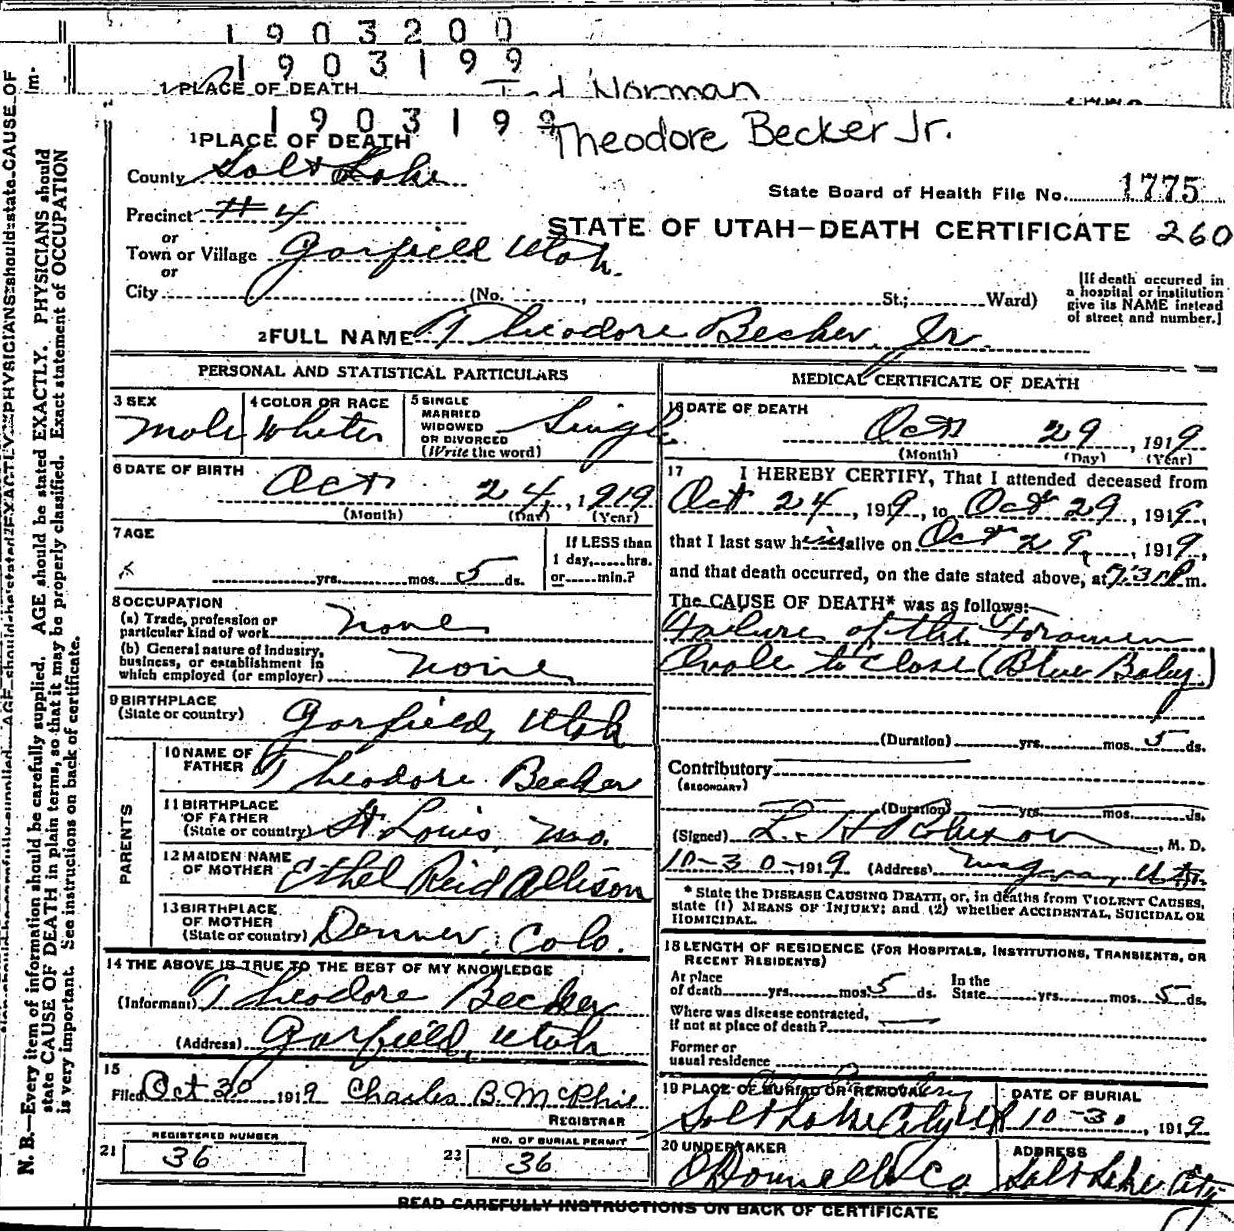 1903200
1903199
1 PLACE OF DEATH Norman
1903199
Theodore Becker Jr.
1 PLACE OF DEATH
County Salt Lake
State Board of Health File No. 1775
Precinct #4
STATE OF UTAH—DEATH CERTIFICATE 260
or
Town or Village Garfield Utah.
or
City (No. , St.; Ward)
[If death occurred in a hospital or institution give its NAME instead of street and number.]
2 FULL NAME Theodore Becker, Jr.
PERSONAL AND STATISTICAL PARTICULARS
3 SEX Male
4 COLOR OR RACE White
5 SINGLE MARRIED WIDOWED OR DIVORCED (Write the word) Single
6 DATE OF BIRTH Oct 24, 1919
(Month) (Day) (Year)
7 AGE yrs. mos. 5 ds.
If LESS than 1 day, hrs. or min.?
8 OCCUPATION
(a) Trade, profession or particular kind of work None
(b) General nature of industry, business, or establishment in which employed (or employer) None
9 BIRTHPLACE (State or country) Garfield, Utah
PARENTS
10 NAME OF FATHER Theodore Becker
11 BIRTHPLACE OF FATHER (State or country) St. Louis, Mo.
12 MAIDEN NAME OF MOTHER Ethel Reid Allison
13 BIRTHPLACE OF MOTHER (State or country) Denver, Colo.
14 THE ABOVE IS TRUE TO THE BEST OF MY KNOWLEDGE
(Informant) Theodore Becker
(Address) Garfield, Utah
15
Filed Oct 30 1919 Charles B. McPhie
REGISTRAR
21 REGISTERED NUMBER 36
22 NO. OF BURIAL PERMIT 36
MEDICAL CERTIFICATE OF DEATH
16 DATE OF DEATH
Oct 29, 1919
(Month) (Day) (Year)
17 I HEREBY CERTIFY, That I attended deceased from
Oct 24, 1919, to Oct 29, 1919,
that I last saw him alive on Oct 29, 1919,
and that death occurred, on the date stated above, at m.
The CAUSE OF DEATH* was as follows:
Failure of the Foramen
Ovale to Close (Blue Baby)
(Duration) yrs. mos. 5 ds.
Contributory
(SECONDARY)
(Duration) yrs. mos. ds.
(Signed) M. D.
10-30-, 1919 (Address) Magna, Utah
* State the DISEASE CAUSING DEATH, or, in deaths from VIOLENT CAUSES, state (1) MEANS OF INJURY; and (2) whether ACCIDENTAL, SUICIDAL OR HOMICIDAL.
18 LENGTH OF RESIDENCE (FOR HOSPITALS, INSTITUTIONS, TRANSIENTS, OR RECENT RESIDENTS)
At place of death yrs. mos. 5 ds. In the State yrs. mos. 5 ds.
Where was disease contracted, if not at place of death?
Former or usual residence
19 PLACE OF BURIAL OR REMOVAL
Salt Lake City Ut
DATE OF BURIAL
10-30, 1919
20 UNDERTAKER
O'Donnell & Co
ADDRESS
Salt Lake City
READ CAREFULLY INSTRUCTIONS ON BACK OF CERTIFICATE
N. B.—Every item of information should be carefully supplied. AGE should be stated EXACTLY. PHYSICIANS should
state CAUSE OF DEATH in plain terms, so that it may be properly classified. Exact statement of OCCUPATION
is very important. See instructions on back of certificate.